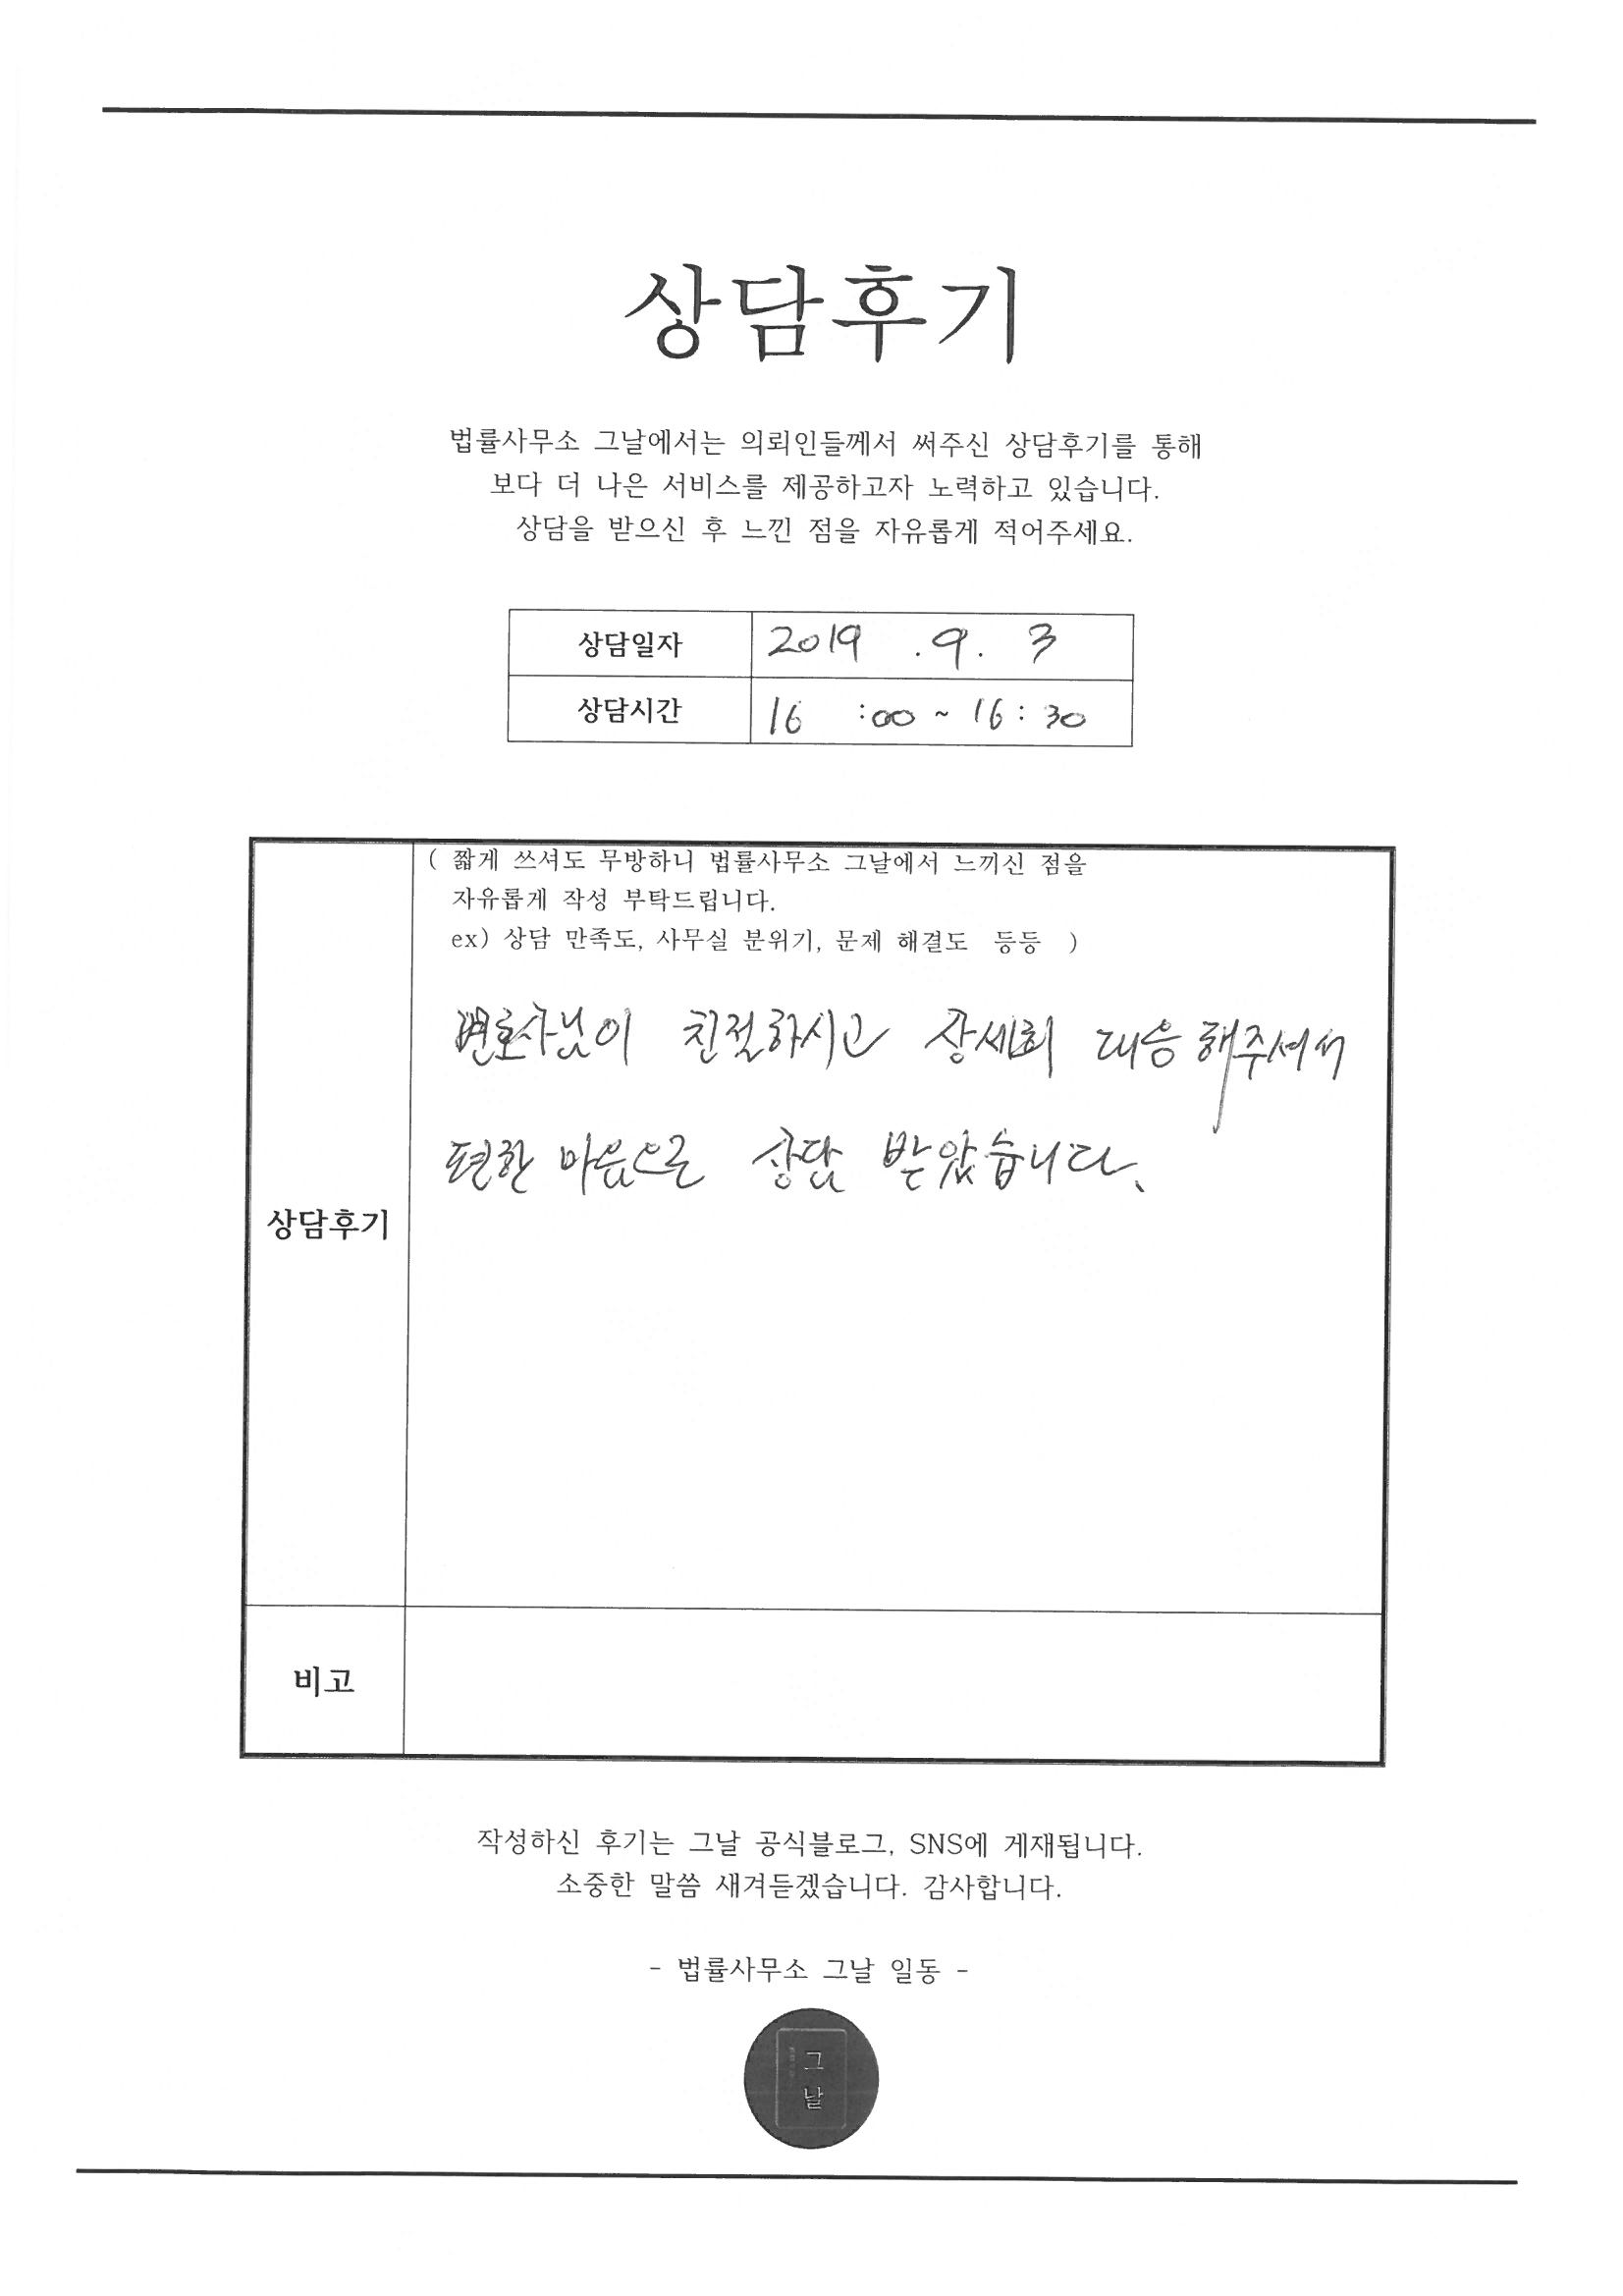 상담후기
법률사무소 그날에서는 의뢰인들께서 써주신 상담후기를 통해
보다 더 나은 서비스를 제공하고자 노력하고 있습니다.
상담을 받으신 후 느낀 점을 자유롭게 적어주세요.
상담일자 2019 . 9. 3
상담시간 16 :00 ~ 16 : 30
( 짧게 쓰셔도 무방하니 법률사무소 그날에서 느끼신 점을
자유롭게 작성 부탁드립니다.
ex) 상담 만족도, 사무실 분위기, 문제 해결도 등등 )
변호사님이 친절하시고 상세히 대응해주셔서
편한 마음으로 상담 받았습니다.
상담후기
비고
작성하신 후기는 그날 공식블로그, SNS에 게재됩니다.
소중한 말씀 새겨듣겠습니다. 감사합니다.
- 법률사무소 그날 일동 -
그
날